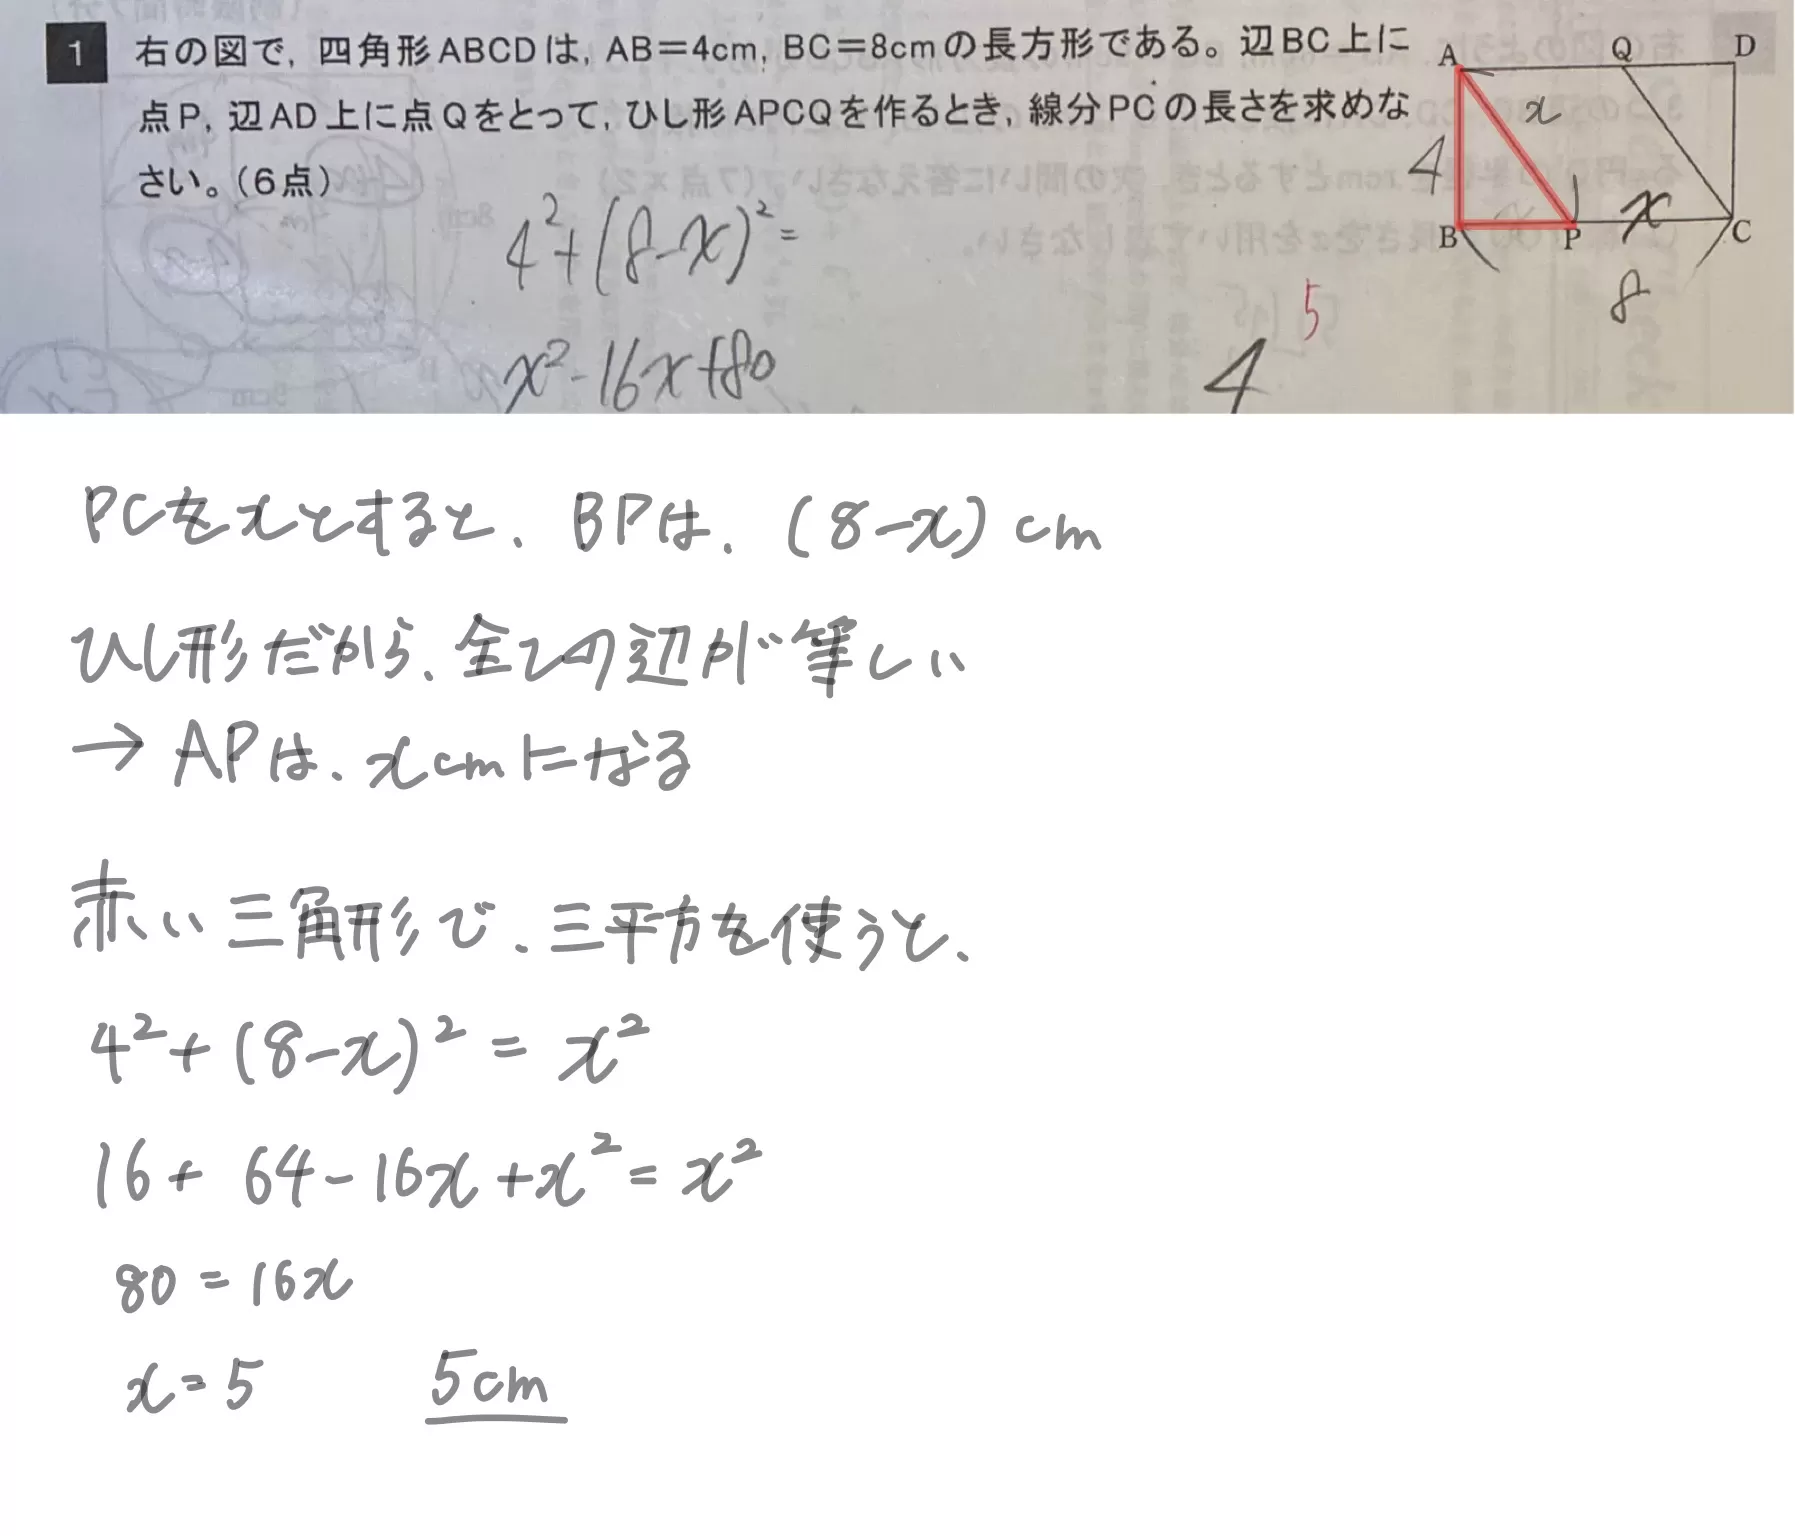 1 右の図で, 四角形ABCDは, AB=4cm, BC=8cmの長方形である。辺BC上に
点P, 辺AD上に点Qをとって, ひし形APCQを作るとき, 線分PCの長さを求めな
さい。(6点)
A Q D
x
4
B P x C
8
4²+(8-x)²=
5
x²-16x+80
4
PCをxとすると、BPは、(8-x)cm
ひし形だから、全ての辺が等しい
→APは、xcmになる
赤い三角形で、三平方を使うと、
4²+(8-x)²=x²
16+64-16x+x²=x²
80=16x
x=5 5cm